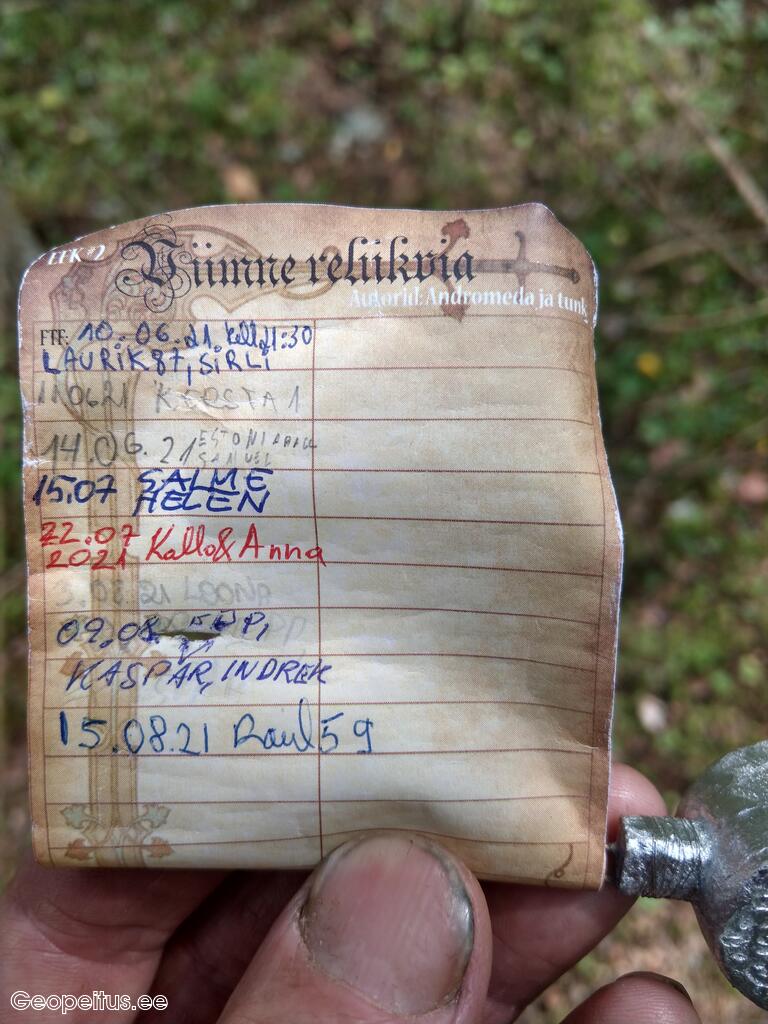 EFK #2
Viimne reliikvia
Autorid: Andromeda ja tunk
FTF: 10.06.21. kell 21:30
LAURIK87, SIRLI
110621 KERSTA1
14.06.21
SAMUEL
15.07 SALME
HELEN
22.07
2021 Kallo&Anna
09.08
KASPAR, INDREK
15.08.21 Raul59
Geopeitus.ee